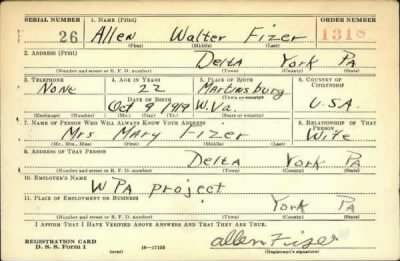 SERIAL NUMBER 1. NAME (Print) ORDER NUMBER
26 Allen Walter Fizer 1318
(First) (Middle) (Last)
2. ADDRESS (Print)
Delta York PA
(Number and street or R. F. D. number) (Town) (County) (State)
3. TELEPHONE 4. AGE IN YEARS 5. PLACE OF BIRTH 6. COUNTRY OF CITIZENSHIP
None 22 Martinsburg
DATE OF BIRTH (Town or county)
Oct 9 1919 W.Va. U.S.A.
(Exchange) (Number) (Mo.) (Day) (Yr.) (State or country)
7. NAME OF PERSON WHO WILL ALWAYS KNOW YOUR ADDRESS 8. RELATIONSHIP OF THAT PERSON
Mrs Mary Fizer Wife
(Mr., Mrs., Miss) (First) (Middle) (Last)
9. ADDRESS OF THAT PERSON
Delta York PA
(Number and street or R. F. D. number) (Town) (County) (State)
10. EMPLOYER'S NAME
WPA project
11. PLACE OF EMPLOYMENT OR BUSINESS
York PA
(Number and street or R. F. D. number) (Town) (County) (State)
I AFFIRM THAT I HAVE VERIFIED ABOVE ANSWERS AND THAT THEY ARE TRUE.
REGISTRATION CARD allen Fizer
D. S. S. Form 1 (over) 16—17105 (Registrant's signature)